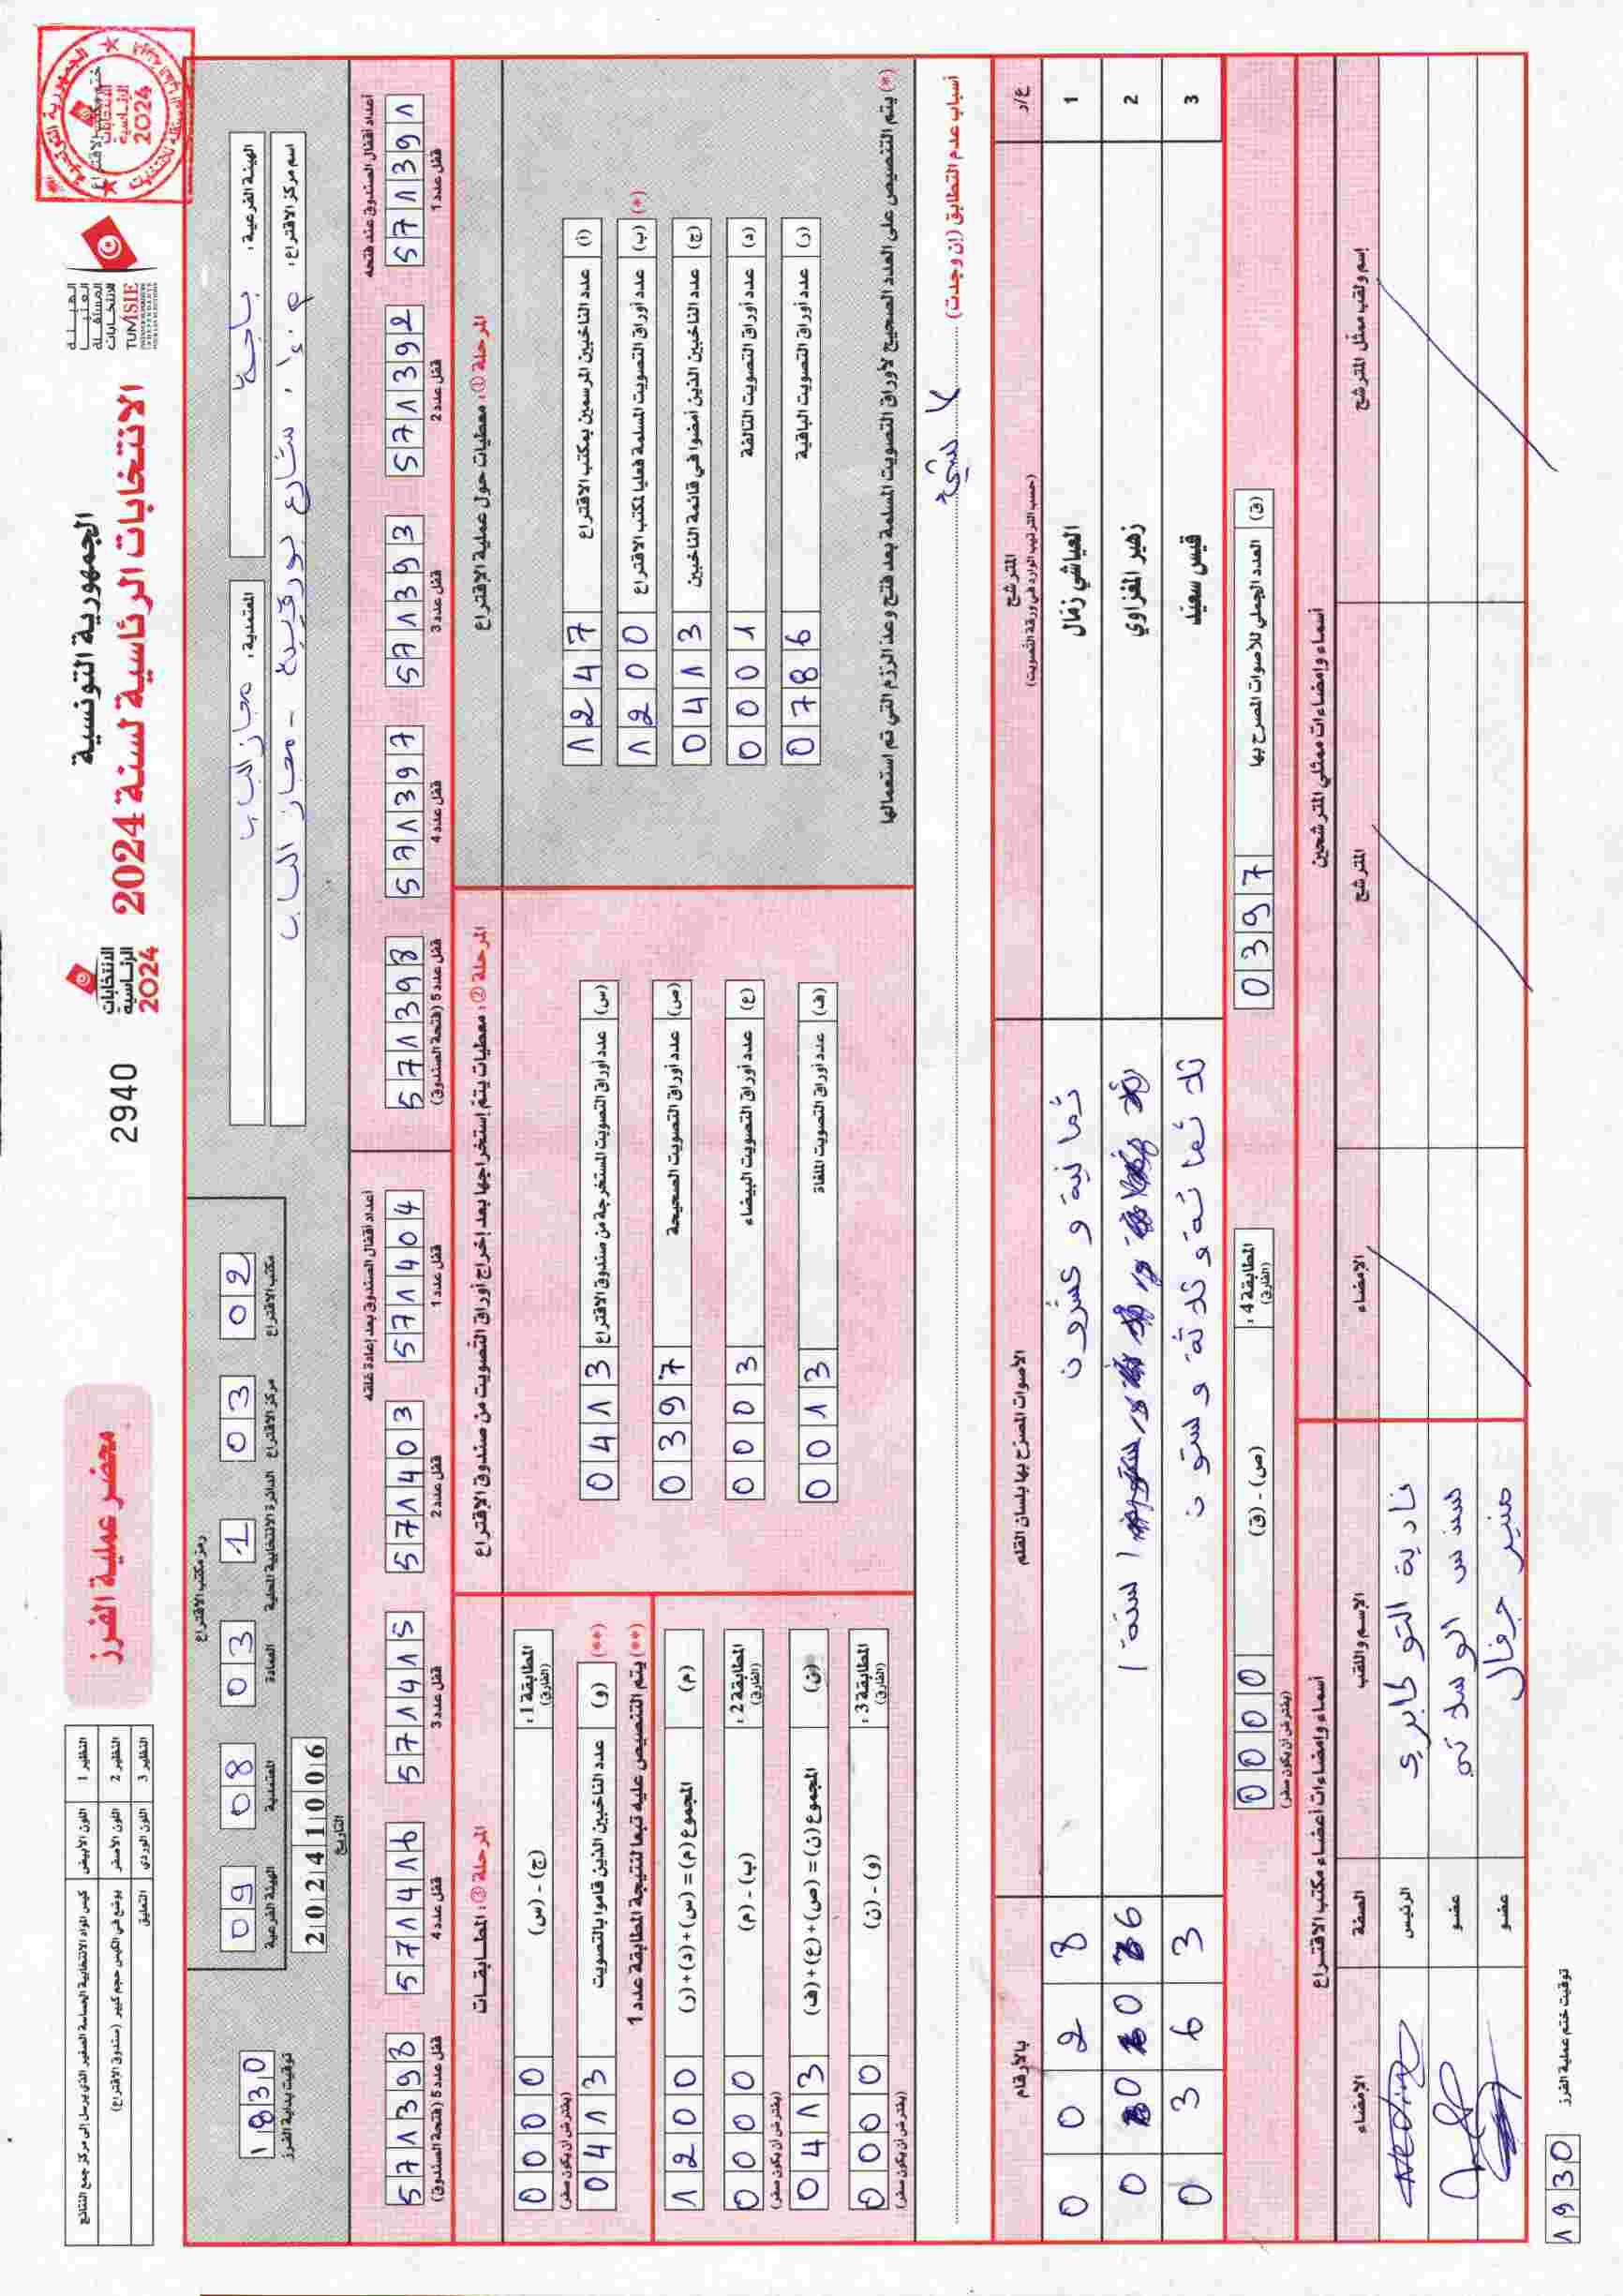 الجمهورية التونسية
الانتخابات الرئاسية لسنة 2024
الهيئة العليا المستقلة للانتخابات
TUNISIE
الانتخابات الرئاسية 2024
2940
محضر عملية الفرز
النظير 1 اللون الأبيض كيس المواد الانتخابية الحساسة الصغير الذي يرسل إلى مركز جمع النتائج
النظير 2 اللون الأصفر يوضع في الكيس حجم كبير (صندوق الاقتراع)
النظير 3 اللون الوردي التعليق
الهيئة الفرعية: باجة
المعتمدية: مجاز الباب
اسم مركز الاقتراع: م.إ. شارع بورقيبة - مجاز الباب
رمز مكتب الاقتراع
09 الهيئة الفرعية
08 المعتمدية
03 العمادة
1 الدائرة الانتخابية المحلية
03 مركز الاقتراع
02 مكتب الاقتراع
20241006
التاريخ
1830
توقيت بداية الفرز
أعداد أقفال الصندوق عند فتحه
5713391 قفل عدد 1
5713392 قفل عدد 2
5713393 قفل عدد 3
5713397 قفل عدد 4
5713398 قفل عدد 5 (فتحة الصندوق)
أعداد أقفال الصندوق بعد إعادة غلقه
5714404 قفل عدد 1
5714403 قفل عدد 2
5714415 قفل عدد 3
5714416 قفل عدد 4
5713398 قفل عدد 5 (فتحة الصندوق)
المرحلة ①: معطيات حول عملية الاقتراع
(أ) عدد الناخبين المرسمين بمكتب الاقتراع 1247
(ب) عدد أوراق التصويت المسلمة فعليا لمكتب الاقتراع 1200 (*)
(ج) عدد الناخبين الذين أمضوا في قائمة الناخبين 0413
(د) عدد أوراق التصويت التالفة 0001
(ر) عدد أوراق التصويت الباقية 0786
(*) يتم التنصيص على العدد الصحيح لأوراق التصويت المسلمة بعد فتح وعد الرزم التي تم استعمالها
المرحلة ②: معطيات يتم إستخراجها بعد إخراج أوراق التصويت من صندوق الاقتراع
(س) عدد أوراق التصويت المستخرجة من صندوق الاقتراع 0413
(ص) عدد أوراق التصويت الصحيحة 0397
(ع) عدد أوراق التصويت البيضاء 0003
(ف) عدد أوراق التصويت الملغاة 0013
المرحلة ③: المطابقات
المطابقة 1: (الفارق) (ج) - (س) 0000
(يفترض أن يكون صفر)
(و) عدد الناخبين الذين قاموا بالتصويت 0413 (**)
(**) يتم التنصيص عليه تبعا لنتيجة المطابقة عدد 1
(م) المجموع (م) = (س) + (د) + (ر) 1200
المطابقة 2: (الفارق) (ب) - (م) 0000
(يفترض أن يكون صفر)
(ن) المجموع (ن) = (ص) + (ع) + (ف) 0413
المطابقة 3: (الفارق) (و) - (ن) 0000
(يفترض أن يكون صفر)
أسباب عدم التطابق (إن وجدت) لا شيء
ع/د المترشح (حسب الترتيب الوارد في ورقة التصويت) الأصوات المصرّح بها بلسان القلم بالأرقام
1 العياشي زمّال ثمانية و عشرون 0028
2 زهير المغزاوي ستة 0006
3 قيس سعيّد ثلاثمائة و ثلاثة و ستون 0363
(ق) العدد الجملي للأصوات المصرح بها 0397
المطابقة 4: (الفارق) (ص) - (ق) 0000
(يفترض أن يكون صفر)
أسماء وإمضاءات ممثلي المترشحين
إسم ولقب ممثل المترشح المترشح الإمضاء
أسماء وإمضاءات أعضاء مكتب الاقتراع
الإسم واللقب الصفة الإمضاء
نادية التوكابري الرئيس
الوسلاتي عضو
منير جفال عضو
1930 توقيت ختم عملية الفرز